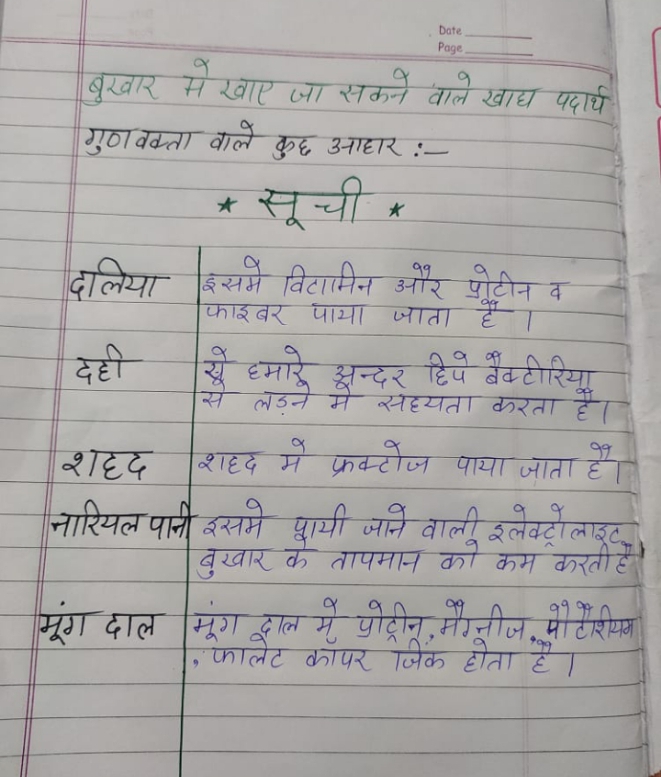 Date
Page
बुखार मे खाए जा सकने वाले खाद्य पदार्थ
गुणवक्ता वाले कुछ आहार :—
* सूची *
दलिया इसमे विटामिन और प्रोटीन व
फाइबर पाया जाता है ।
दही ये हमारे अन्दर छिपे बैक्टीरिया
से लड़ने मे सहयता करता है।
शहद शहद मे फ्रक्टोज पाया जाता है।
नारियल पानी इसमे पायी जाने वाली इलेक्ट्रोलाइट
बुखार के तापमान को कम करती है
मूंग दाल मूंग दाल मे प्रोट्रीन, मैग्नीज, पोटेशियम
, फालेट कापर जिंक होता है ।